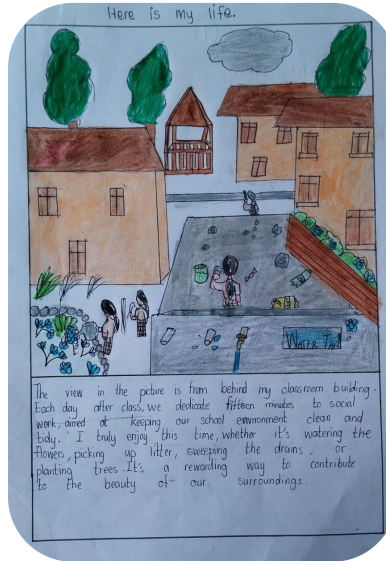 Here is my life.
Water Tap
The view in the picture is from behind my classroom building.
Each day after class, we dedicate fifteen minutes to social
work, aimed at keeping our school environment clean and
tidy. I truly enjoy this time, whether it's watering the
flowers, picking up litter, sweeping the drains, or
planting trees. It's a rewarding way to contribute
to the beauty of our surroundings.